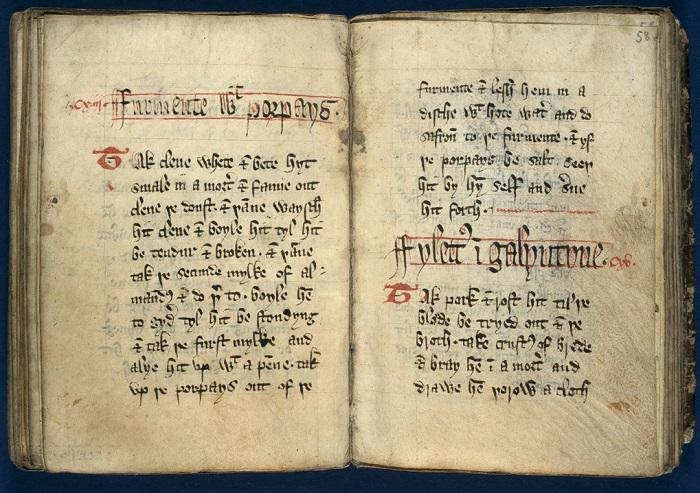 Furmente wᵗ porpays.
Tak clene whete & bete hyt
smale in a mort̉ & fanne out
clene þe doust. & þãne waysch
hit clene & boyle hit tyl hit
be tendur & broken. & þãne
tak þe secunde mylke of al-
mandꝰ & do þ̉ to. boyle hẽ
to gyd̉ tyl hit be stondyng
& tak þe furst mylke and
alye hit vp wᵗ a pẽne. tak
vp þe porpays out of þe
58
furmente & lesh̉ hem in a
disshe wᵗ hote wat̉ and do
safron to þe furmente. & yf
þe porpays be salt. seeþ
hit by hỹ self and s̉ue
hit forth.
Fylett̉ ĩ galyntyne.
Tak pork & rost hit til þe
blode be tryed out & þe
broth. take crustꝰ of brede
& bray hẽ ĩ a mort̉ and
drawe hẽ þorow a cloth